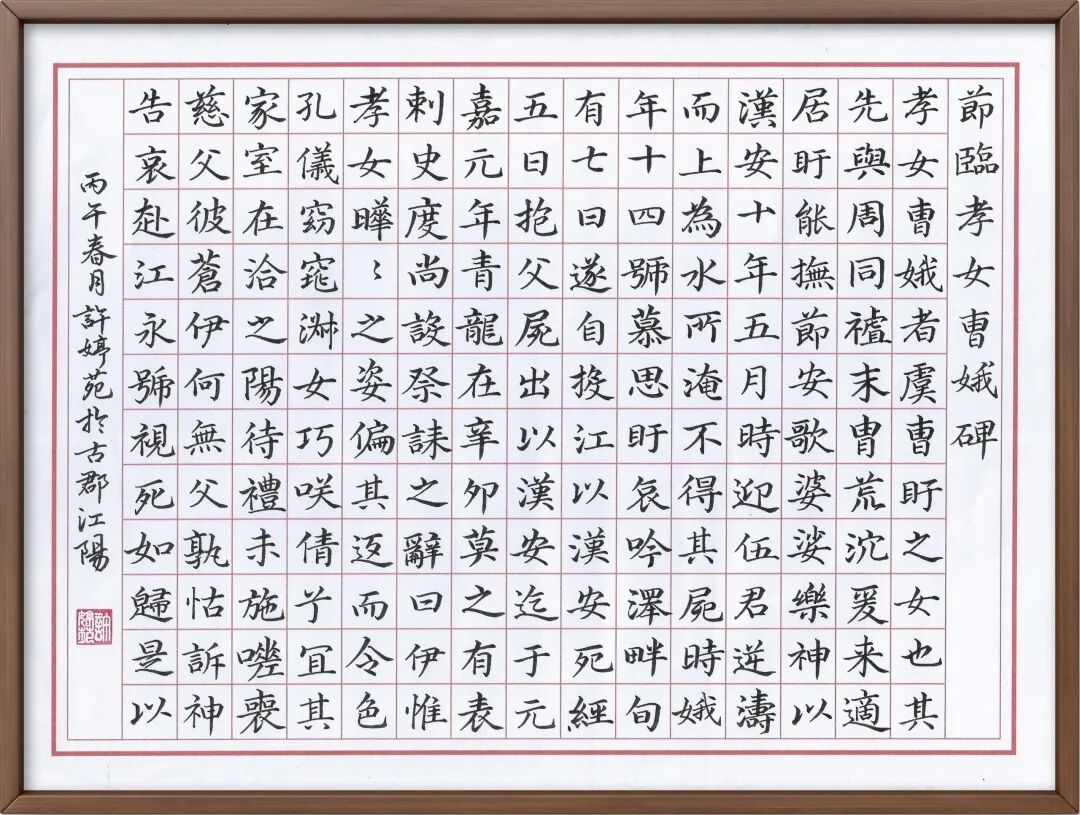 節臨孝女曹娥碑
孝女曹娥者虞曹盱之女也其
先與周同祖末冑荒沉爰来適
居盱能撫節安歌婆娑樂神以
漢安十年五月時迎伍君逆濤
而上為水所淹不得其屍時娥
年十四號慕思盱哀吟澤畔旬
有七日遂自投江以漢安死經
五日抱父屍出以漢安迄于元
嘉元年青龍在辛卯莫之有表
刺史度尚設祭誄之辭曰伊惟
孝女曄〻之姿偏其返而令色
孔儀窈窕淑女巧咲倩兮宜其
家室在洽之陽待禮未施嗟喪
慈父彼蒼伊何無父孰怙訴神
告哀赴江永號視死如歸是以
丙午春月許婷苑於古郡江陽
許婷苑